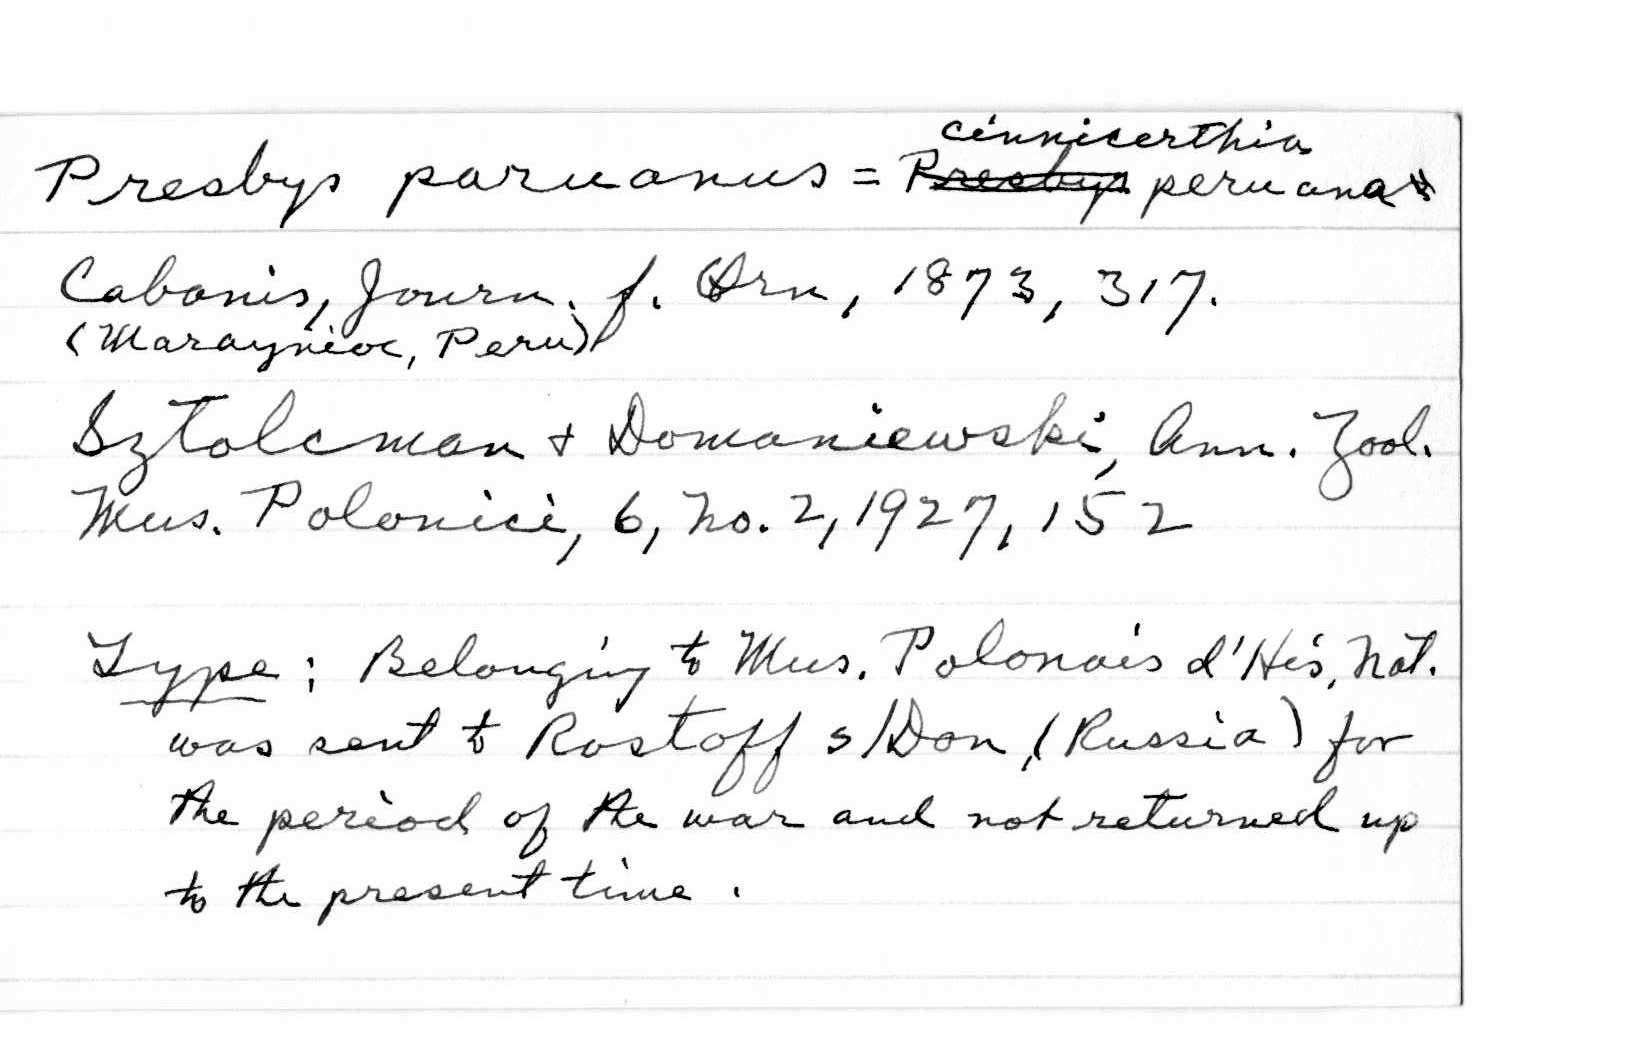 cinnicerthia
Presbys paruanus = Presbys peruana
Cabanis, Journ. f. Orn, 1873, 317.
(Maraynioc, Peru)
Sztolcman + Domaniewski, Ann. Zool.
Mus. Polonici, 6, No. 2, 1927, 152
Type: Belonging to Mus. Polonais d'His, Nat.
was sent to Rostoff s/Don, (Russia) for
the period of the war and not returned up
to the present time.